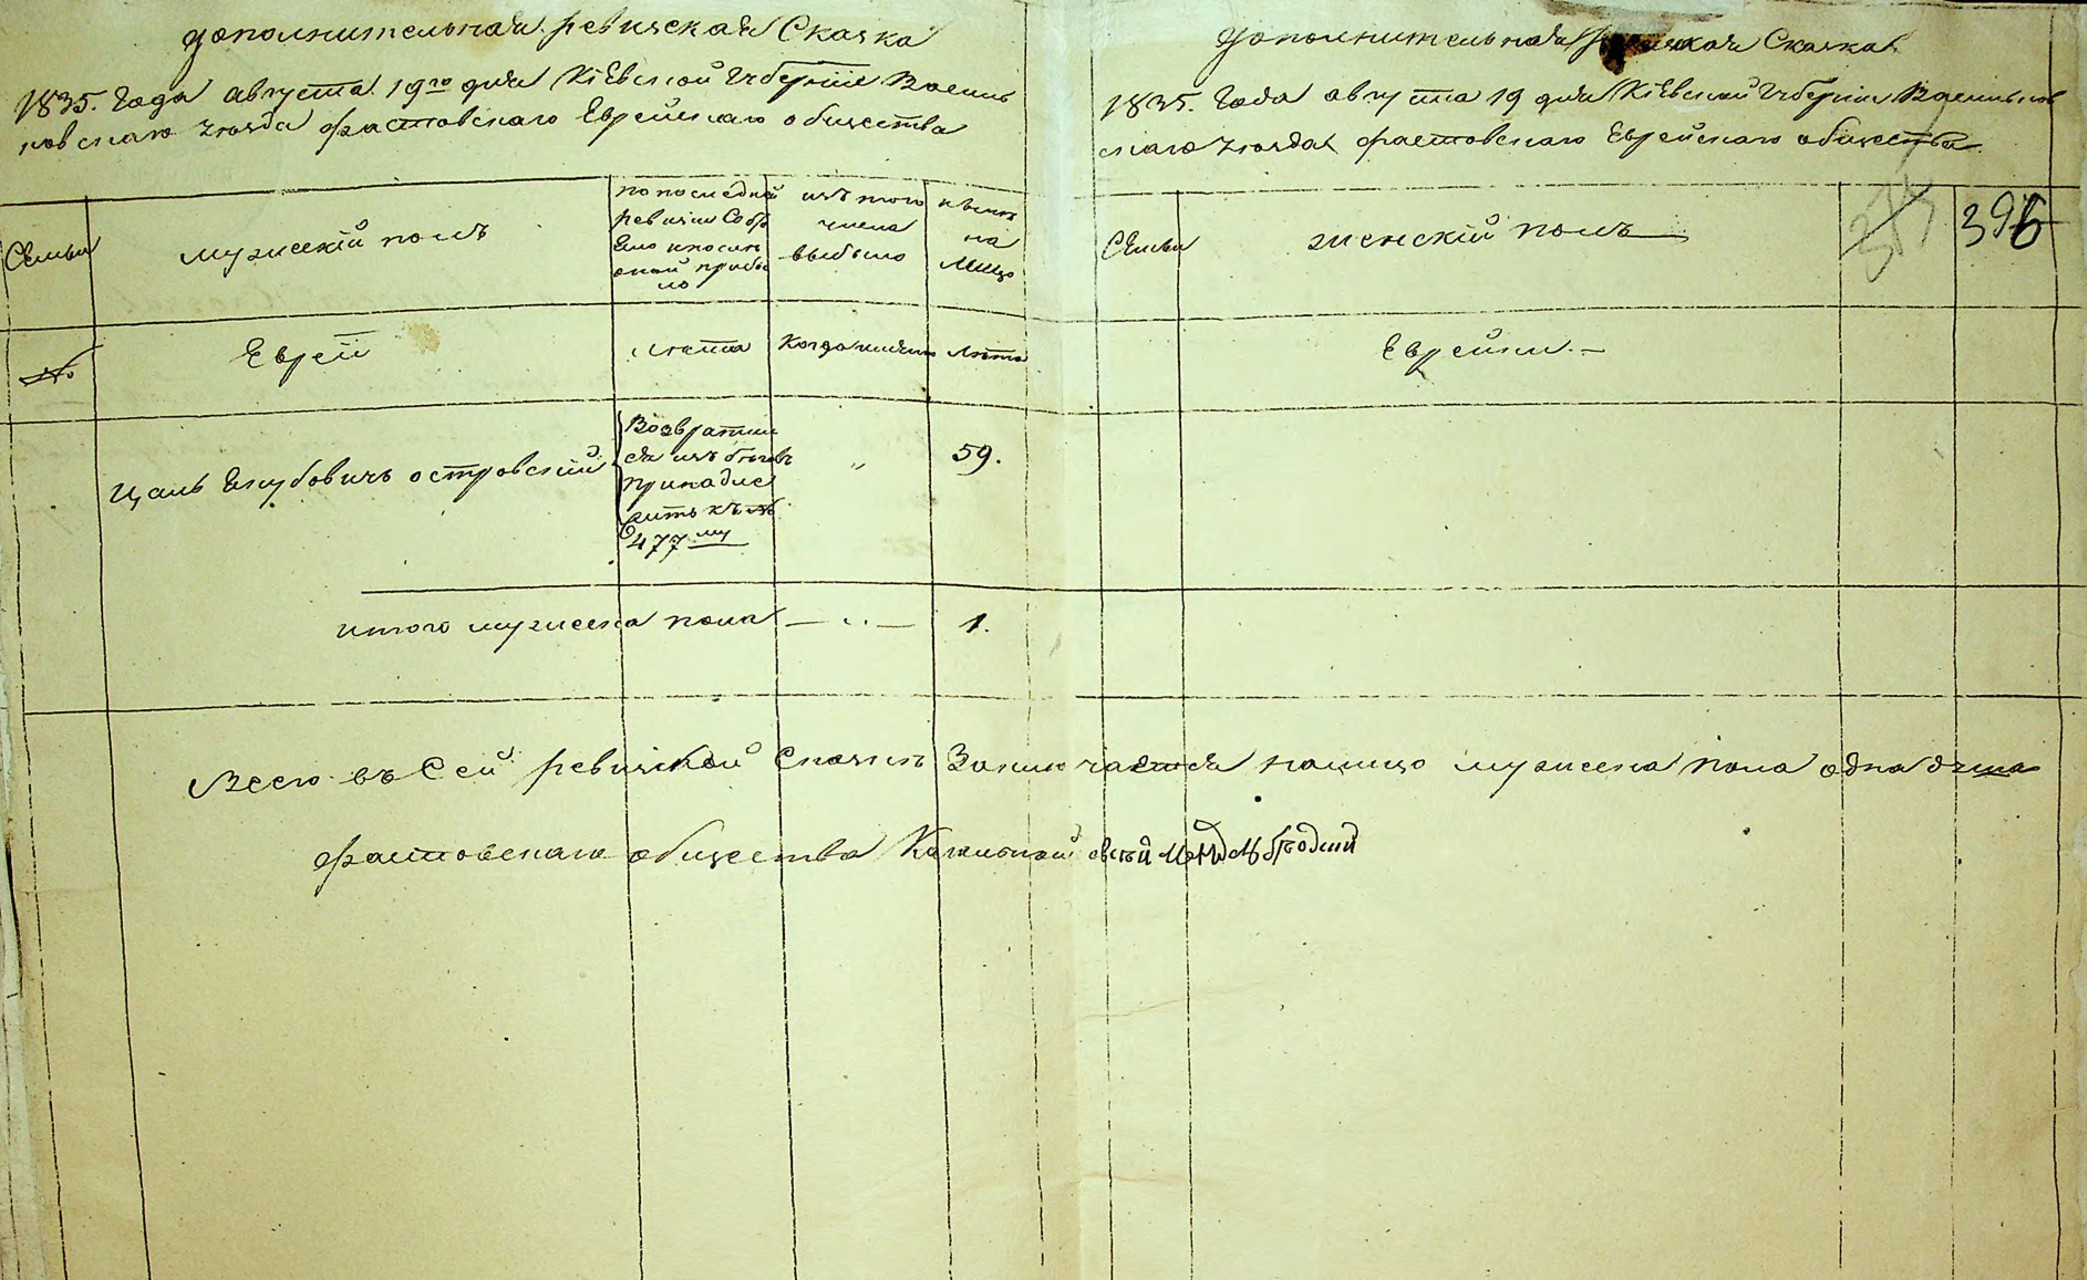 дополнительная ревизская Сказка
1835. Года августа 19го дня Кіевской Губерніи Василь
ковскаго уезда фастовскаго Еврейскаго общества
Семьи
мужескій полъ
по последней
ревизіи Состо
яло и после
оной прибы
ло
изъ того
числа
выбыло
ныне
на
Лицо
№
Евреи
лета
Когда именно
лета
Цаль Якубовичъ островский
Возврати
ся изъ беговъ
принадле
жить къ №
477му
"
59.
итого мужеска пола — " —
1.
дополнительная ревизская Сказка
1835. Года августа 19 дня Кіевской Губерніи Васильков
скаго уезда фастовскаго Еврейскаго общества
Семьи
женскій полъ
396
Еврейки. —
Всего въ Сей ревизской Сказке Заключается налицо мужеска пола одна душа
фастовскаго общества Кагальной